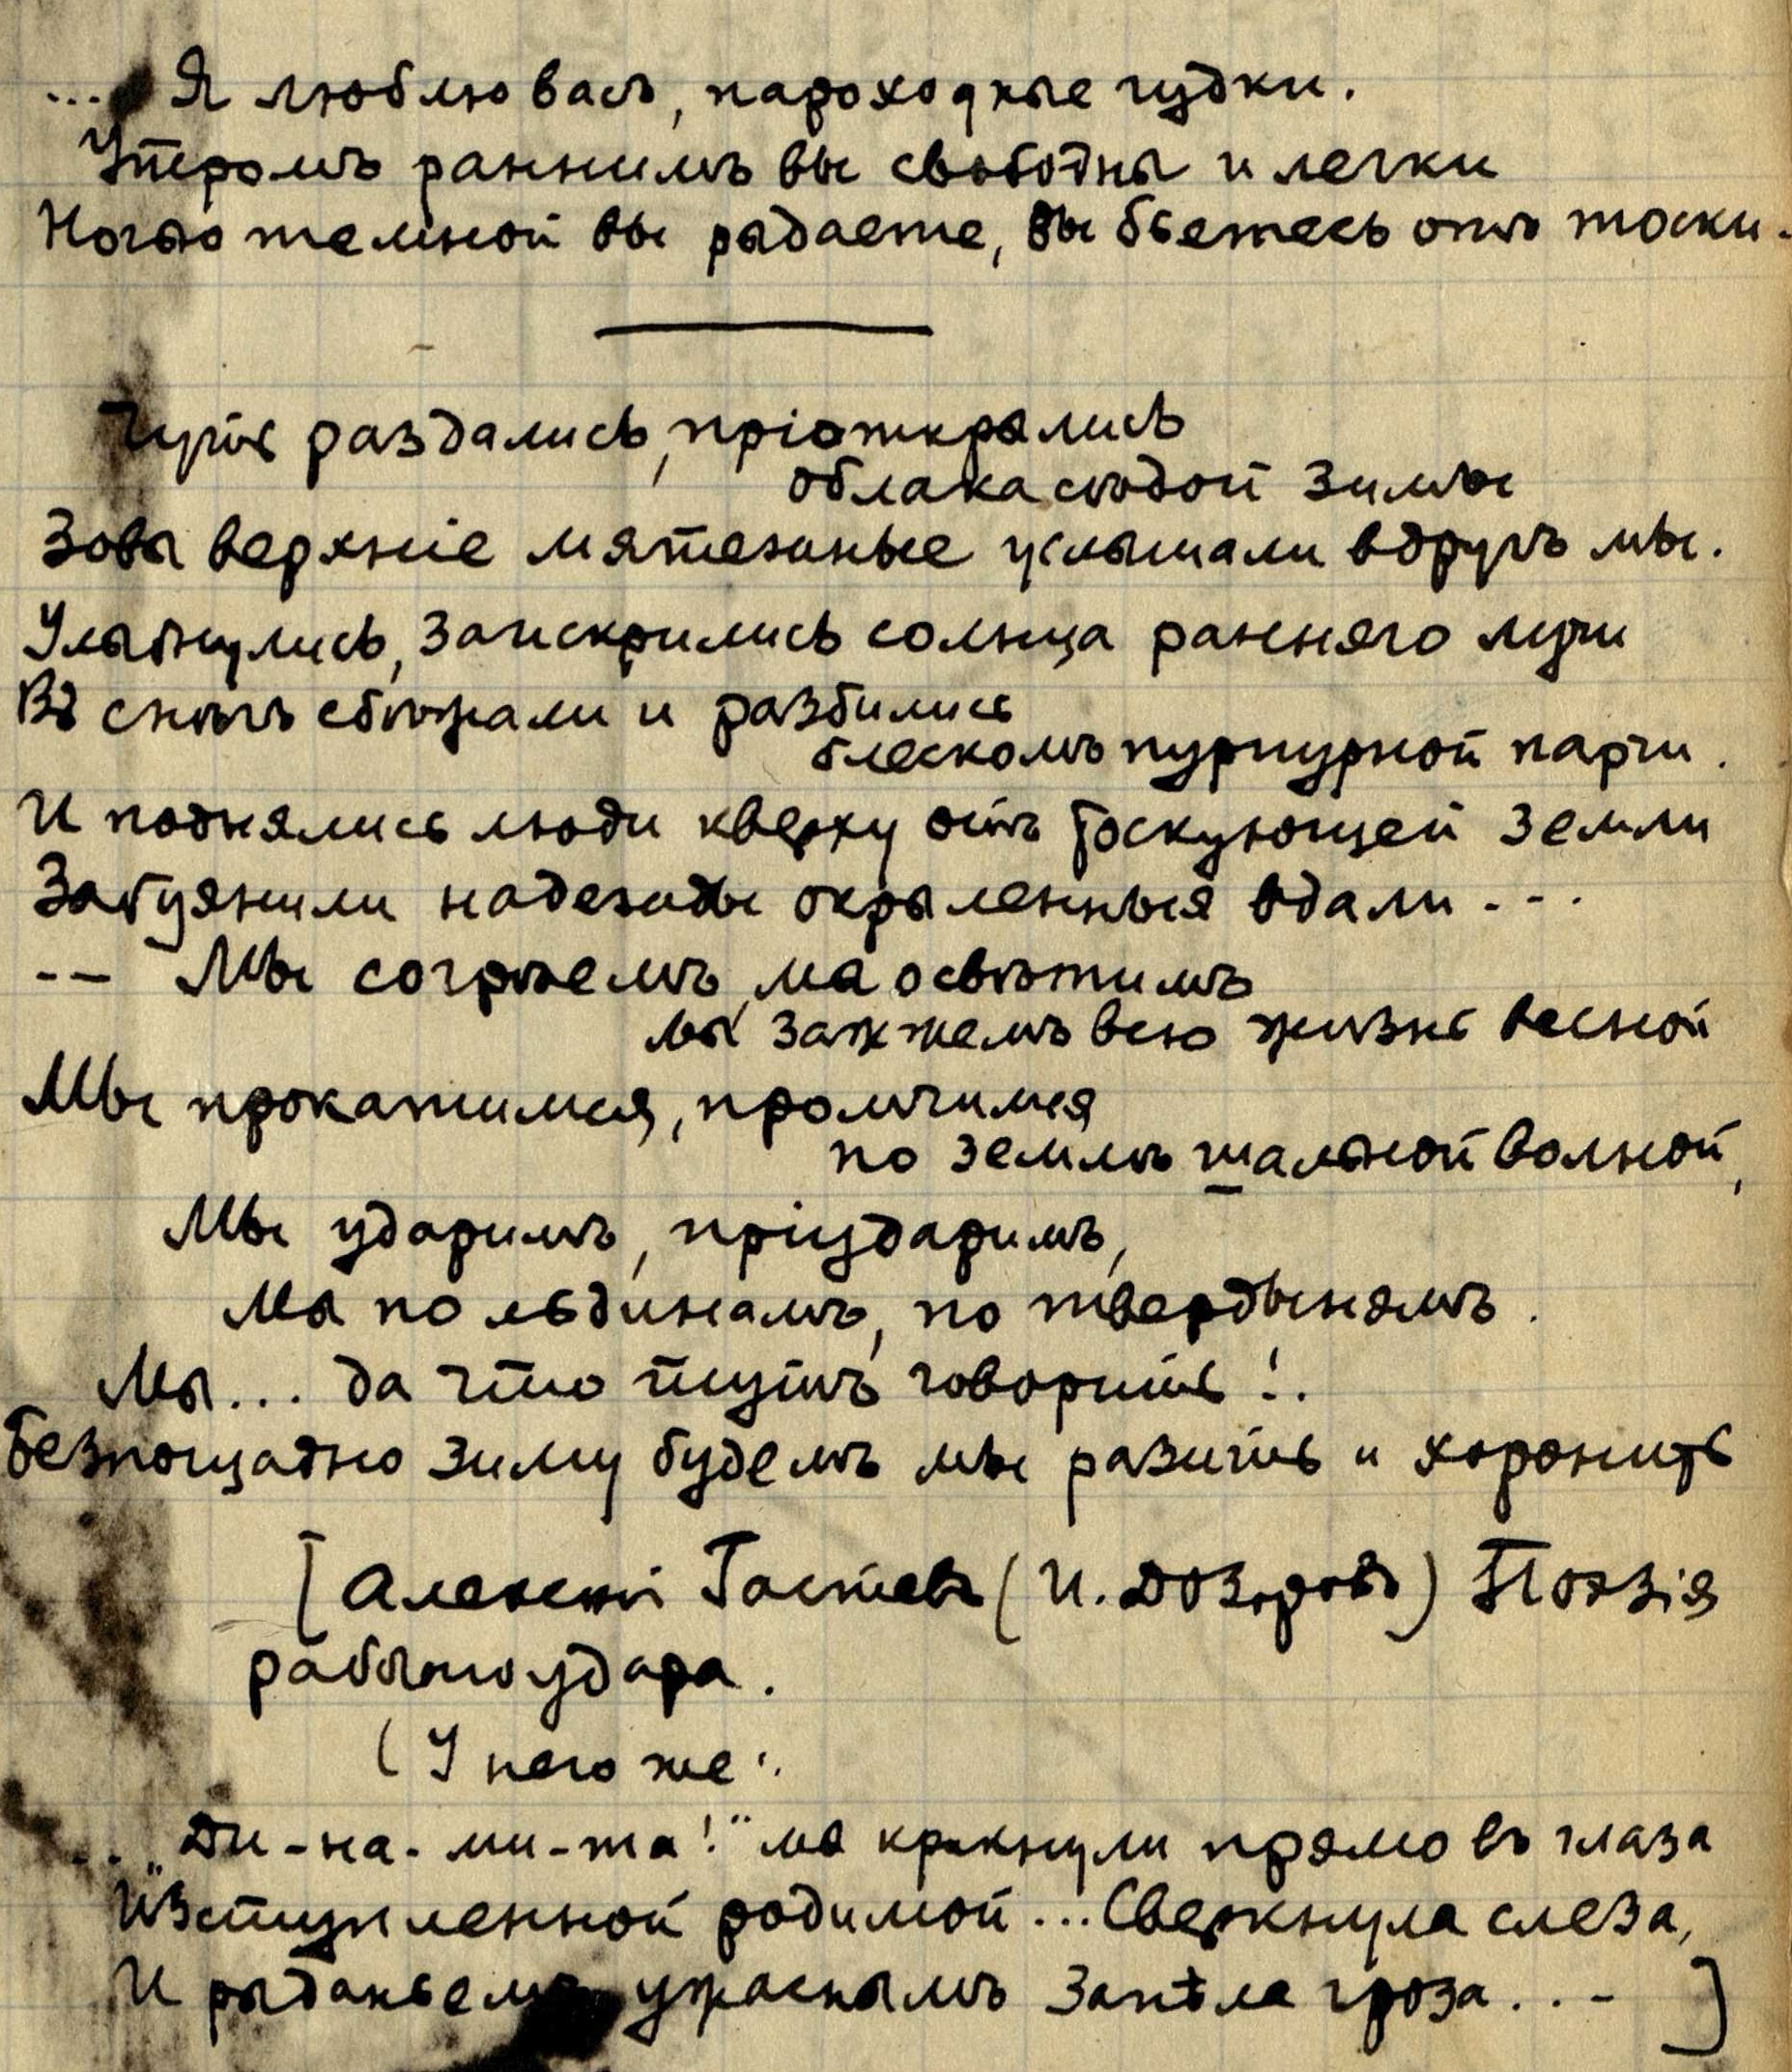 ... Я люблю васъ, пароходные гудки.
Утромъ раннимъ вы свободны и легки
Ночью темной вы рыдаете, вы бьетесь отъ тоски.
Чуть раздались, пріоткрылись
облака сѣдой зимы
Зовы верхніе мятежные услышали вдругъ мы.
Улыбнулись, заискрились солнца ранняго лучи
Въ снѣгъ сбѣжали и разбились
блескомъ пурпурной парчи.
И поднялись люди кверху отъ тоскующей земли
Забуянили надежды окрыленныя вдали - - .
-- Мы согрѣемъ, мы освѣтимъ
мы зажжемъ всю жизнь весной
Мы прокатимся, промчимся
по землѣ шальной волной,
Мы ударимъ, пріударимъ,
Мы по льдинамъ, по твердынямъ.
Мы... да что тутъ говорить!.
Безпощадно зиму будемъ мы разить и хоронить
[Алексѣй Гастевъ (И. Дозоровъ) Поэзія
рабочаго удара.
(У него же:
.. „Ди-на-ми-та!" мы крикнули прямо въ глаза
Изступленной родимой... Сверкнула слеза,
И рыданьемъ ужаснымъ запѣла гроза.. - ]